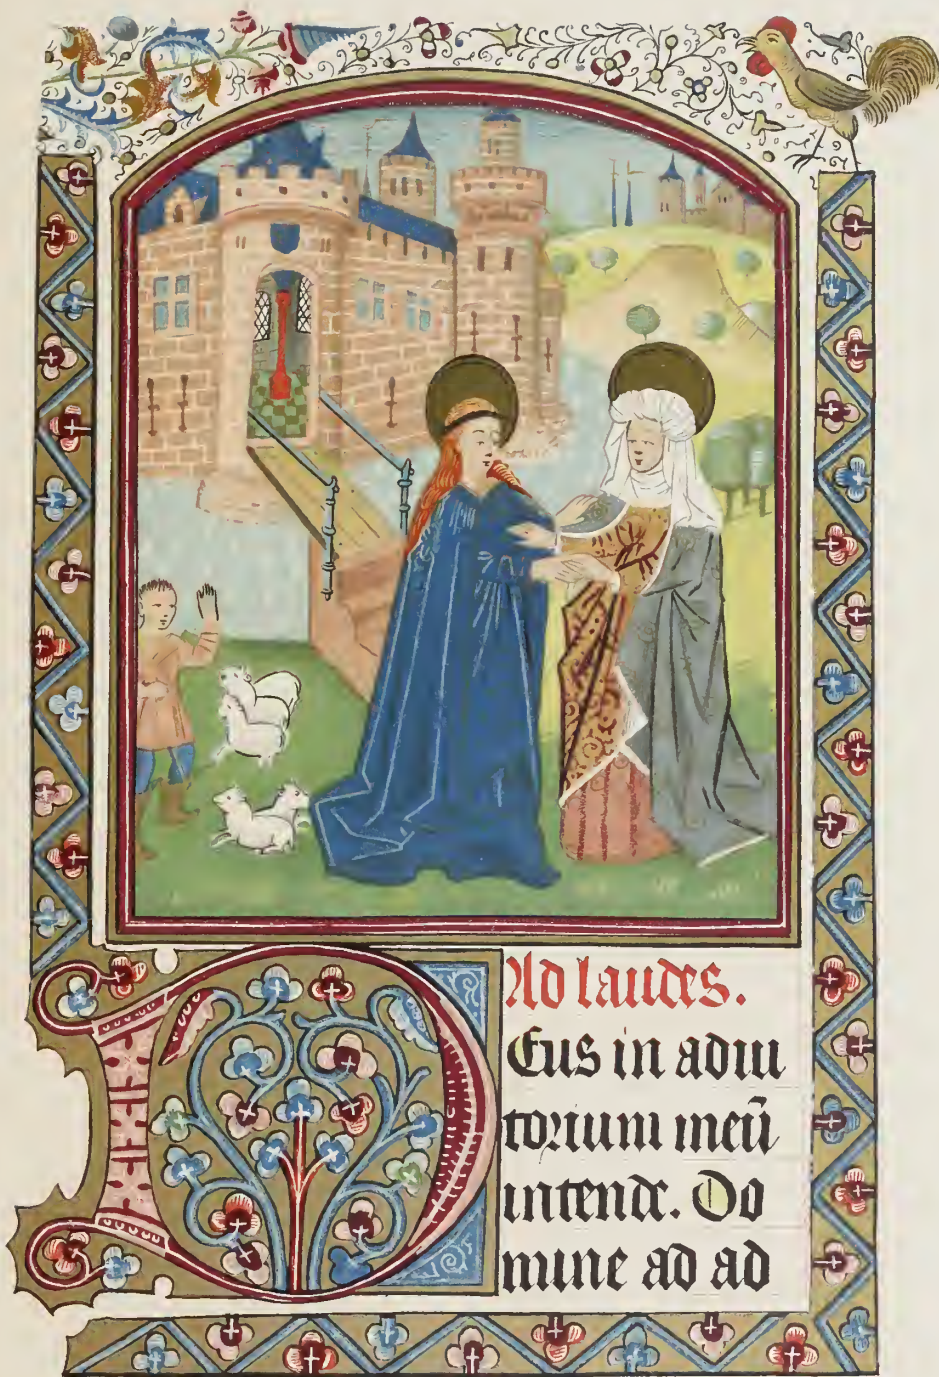 Ad laudes.
Deus in adiu
torium meū
intende. Do
mine ad ad